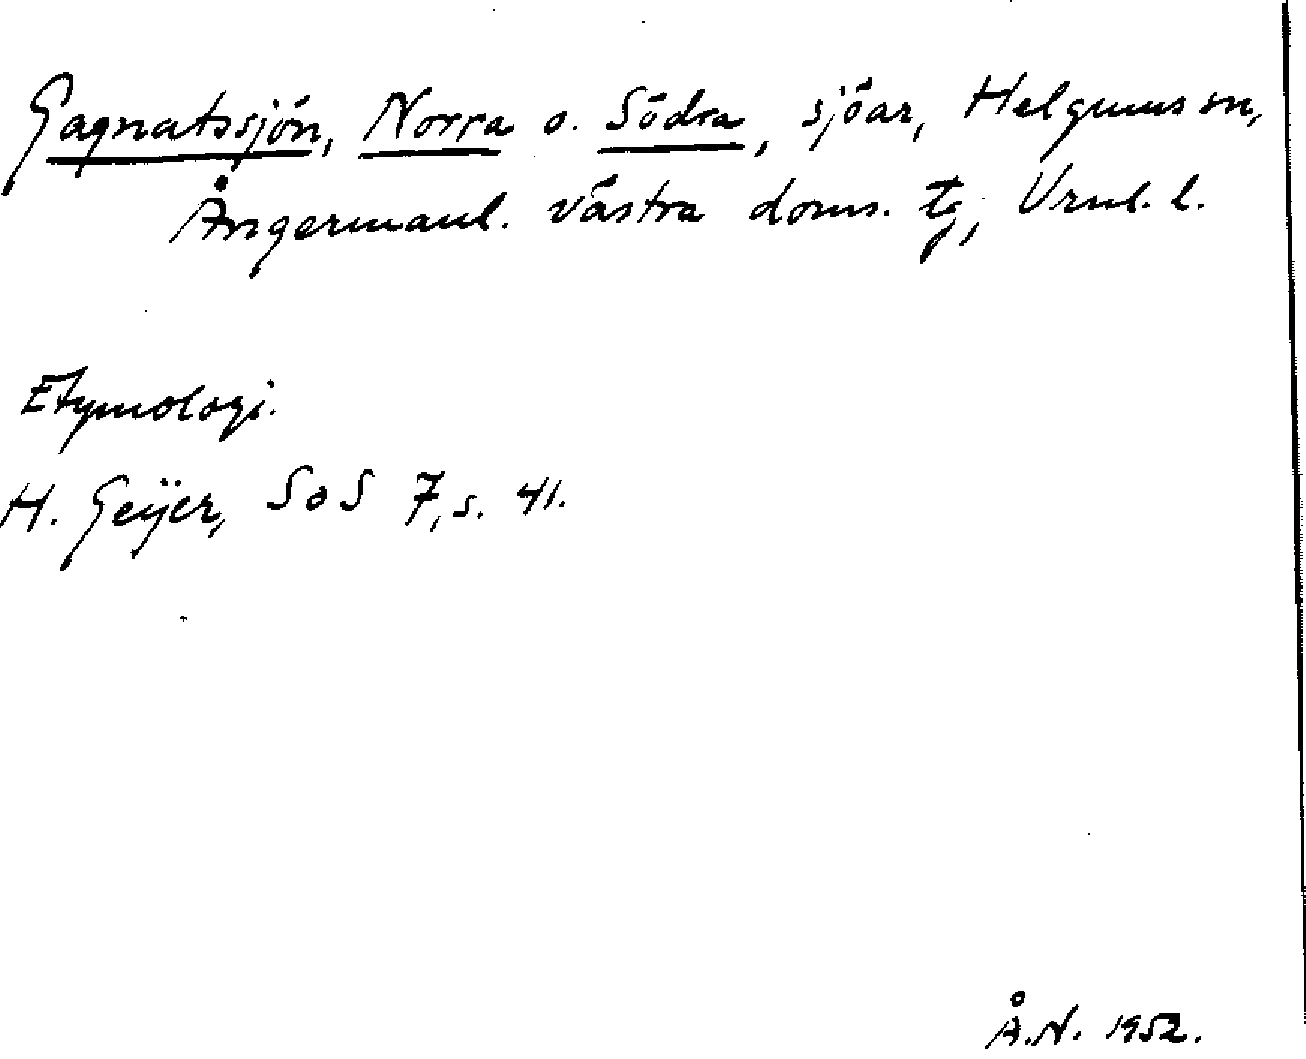 Gagnatssjön, Norra o. Södra, sjöar, Helgums sn,
Ångermanl. västra doms. tg, Vrnl. l.
Etymologi.
H. Geijer, SoS 7, s. 41.
Å.N. 1952.